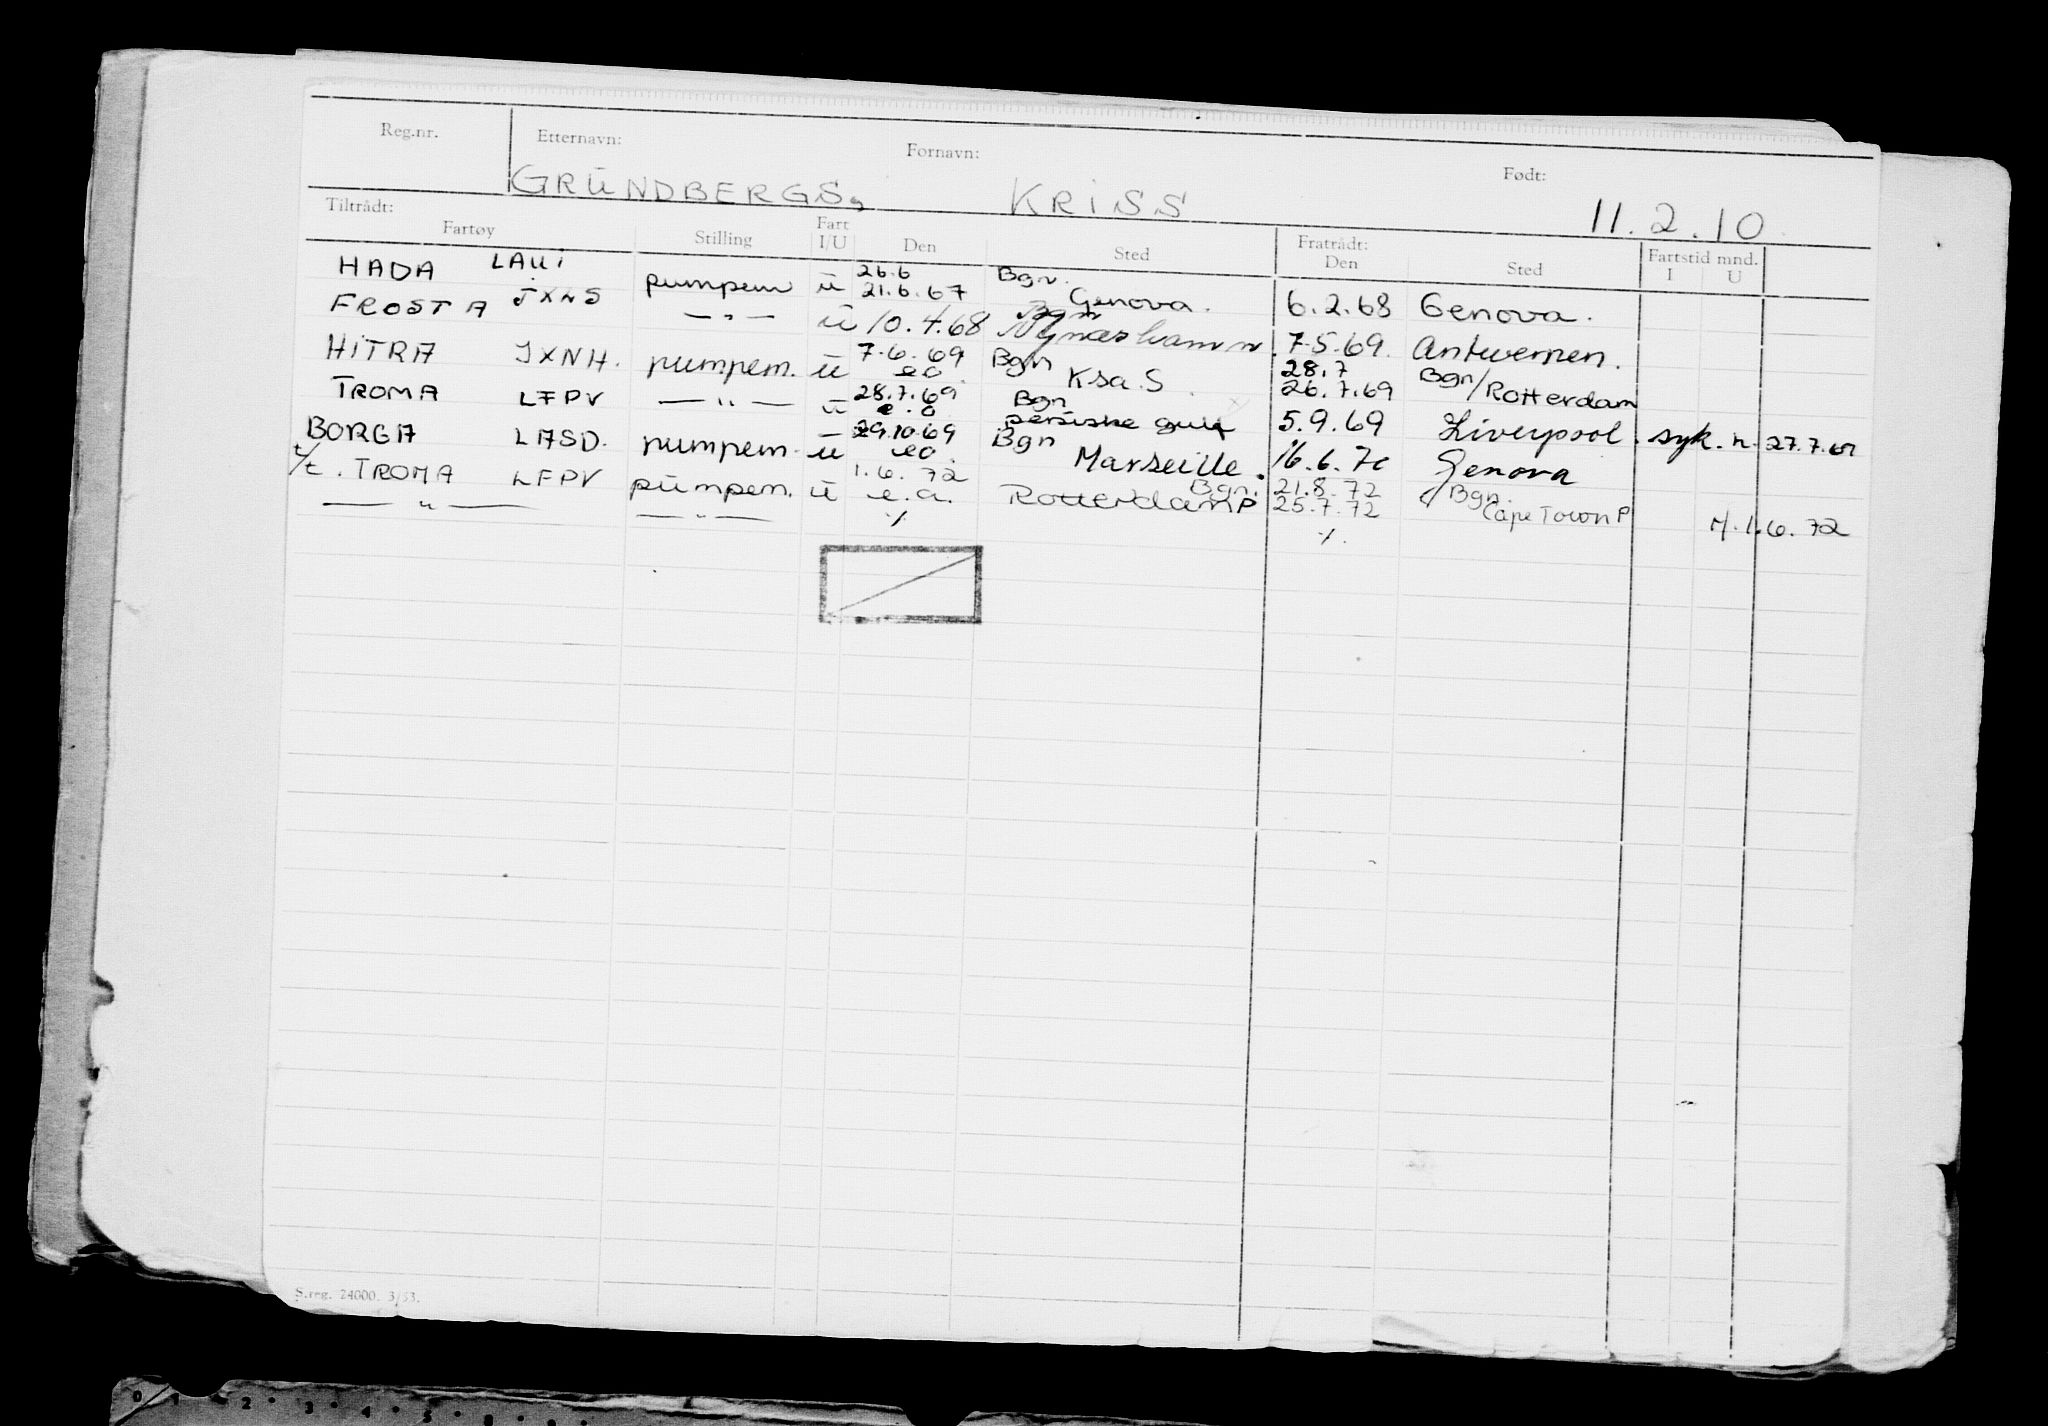 Reg.nr. Etternavn: Fornavn: Født:
GRUNDBERGS, KRISS 11.2.10
Tiltrådt: Fratrådt: Fartstid mnd.
Fartøy Stilling Fart I/U Den Sted Den Sted I U
HADA LAUI pumpem u 26.6 21.6.67 Bgn. Genova. 6.2.68 Genova.
FROSTA JXNS — " — u 10.4.68 Bgn Nynæshamn 7.5.69. Antwerpen.
HITRA JXNH. pumpem. u 7.6.69 eo Bgn Ksa. S 28.7 26.7.69 Bgn/Rotterdam
TROMA LFPV — " — u 28.7.69 e.o Bgn persiske gulf 5.9.69 Liverpool. syk. n. 27.7.69
BORGA LASD. pumpem. u 29.10.69 eo. Bgn Marseille. 16.6.70 Genova
t/t. TROMA LFPV pumpem. u 1.6.72 e.a. Bgn. Rotterdam P 21.8.72 25.7.72 Bgn. Cape Town P
— " — — " — ./. ./. M. 1.6.72
S.reg. 24000. 3/53.
0 1 2 3 4 5 8 9